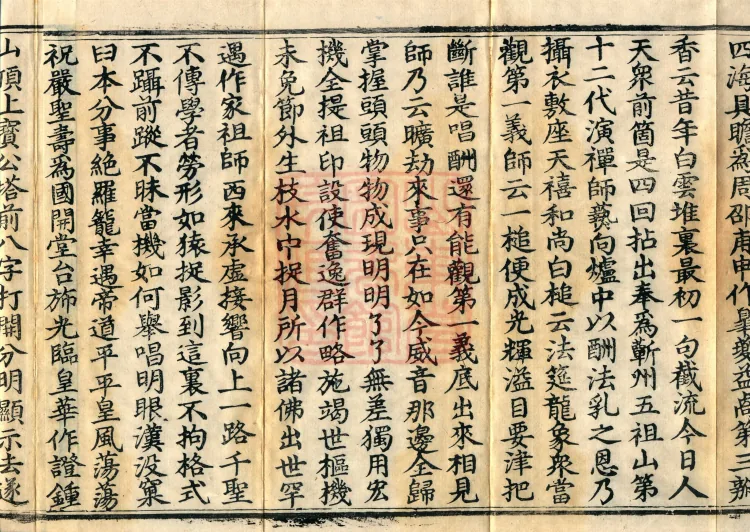 四海具瞻爲周邵甫申作皋夔益卨第三瓣
香云昔年白雲堆裏最初一句截流今日人
天衆前箇是四回拈出奉爲蘄州五祖山第
十二代演禪師爇向爐中以酬法乳之恩乃
攝衣敷座天禧和尚白槌云法筵龍象衆當
觀第一義師云一槌便成光輝溢目要津把
斷誰是唱酬還有能觀第一義底出來相見
師乃云曠劫來事只在如今威音那邊全歸
掌握頭頭物物成現明明了了無差獨用宏
機全提祖印設使奮逸群作略施竭世樞機
未免節外生枝水中捉月所以諸佛出世罕
遇作家祖師西來承虛接響向上一路千聖
不傳學者勞形如猿捉影到這裏不拘格式
不躡前蹤不昧當機如何舉唱明眼漢沒窠
臼本分事絶羅籠幸遇帝道平平皇風蕩蕩
祝嚴聖壽爲國開堂台斾光臨皇華作證鍾
山頂上寶公塔前八字打開分明顯示去遂